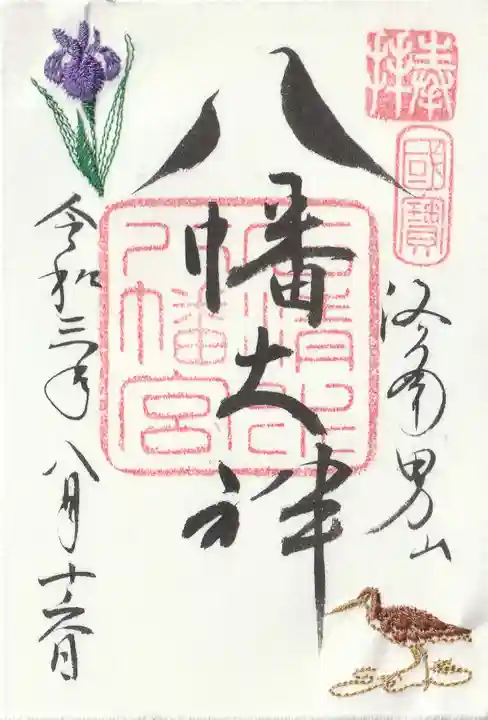 奉拝
國寶
洛南男山
八幡大神
石清水
八幡宮
令和三年八月十六日